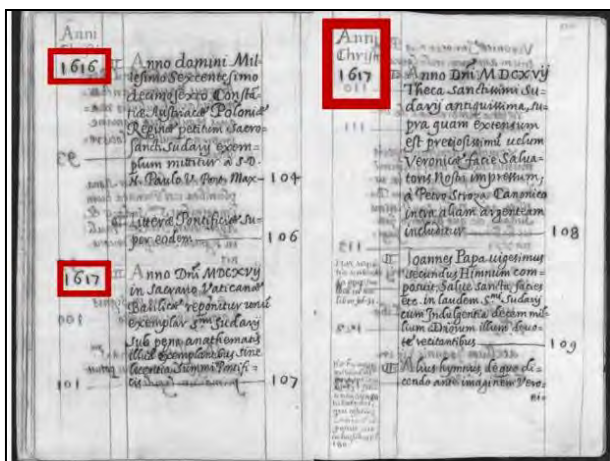 Anni
1616
Anno domini Mil=
lesimo Sexcentesimo
decimosexto Constã
tiæ Austriacæ Poloniæ
Reginæ petitum Sacro=
sancti Sudarij exem=
plum mittitur à S. D.
N. Paulo V. Pont. Max= 104
Litteræ Pontificiæ Su=
per eodem 106
1617
Anno Dnī MDCXVIJ
in Sacrario Vaticanæ
Basilicæ reponitur unũ
exemplar Smi Sudarij
sub pena anathematis
illud exemplantibus sine
licentia Summi Pontifi=
cis 107
101
Anni
Christi
1617
Anno Dnī MDCXVIJ
Theca sanctissimi Su=
darij antiquissima, su=
pra quam extensum
est pretiosissimũ uelum
Veronicæ facie Salua=
toris Nostri impressum,
à Petro Stroza Canonico
intra aliam argenteam
includitur 108
Joannes Papa uigesimus
secundus Himnum com=
posuit, Salue Sancta facies
etc. in laudem Smi Sudarij
cum Indulgentia decem mil=
lium Dierum illum deuo=
te recitantibus 109
Alius hymnus, de quo di=
cendo ante imaginem Vero=
ni=